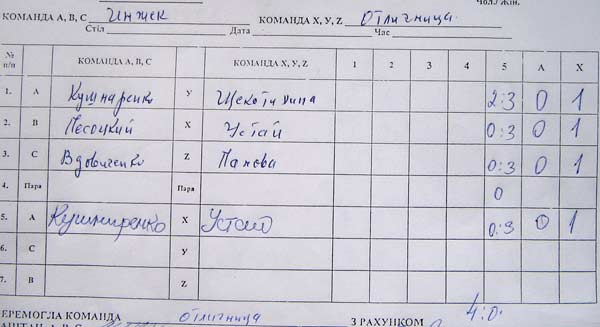 Чол./Жін.
КОМАНДА А, В, С Инжек КОМАНДА X, У, Z Отличница
Стіл Дата Час
№ п/п КОМАНДА А, В, С КОМАНДА X, У, Z 1 2 3 4 5 А X
1. А Кушнаренко У Щекотихина 2:3 0 1
2. В Песоцкий X Устай 0:3 0 1
3. С Вдовиченко Z Панова 0:3 0 1
4. Пара Пара 0
5. А Кушниренко X Устай 0:3 0 1
6. С У
7. В Z
ЕРЕМОГЛА КОМАНДА отличница З РАХУНКОМ 4:0